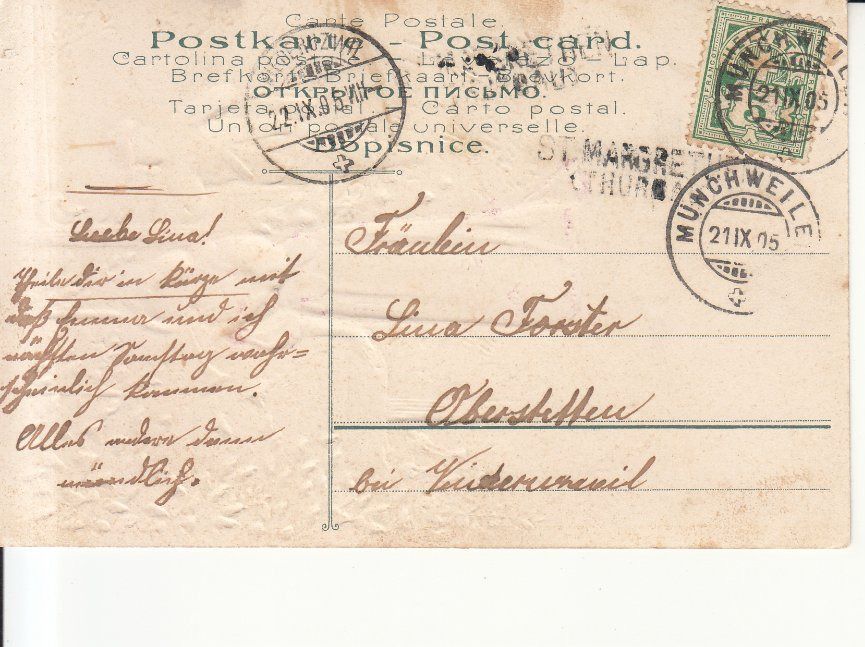 Carte Postale.
Postkarte - Post card.
Cartolina postale - Lap.
Brefkort. Briefkaart. Brevkort.
ОТКРЫТОЕ ПИСЬМО.
Tarjeta postal. Carto postal.
Union postale universelle.
Dopisnice.
22.IX.05.VII
MÜNCHWEILE
21 IX 05
ST. MARGRETH
(THURG
MÜNCHWEILE
21 IX 05
Liebe Lina!
Theile dir in Kürze mit
daß Emma und ich
nächsten Samstag wahr=
scheinlich kommen.
Alles andere dann
mündlich.
Fräulein
Lina Forster
Oberstetten
bei